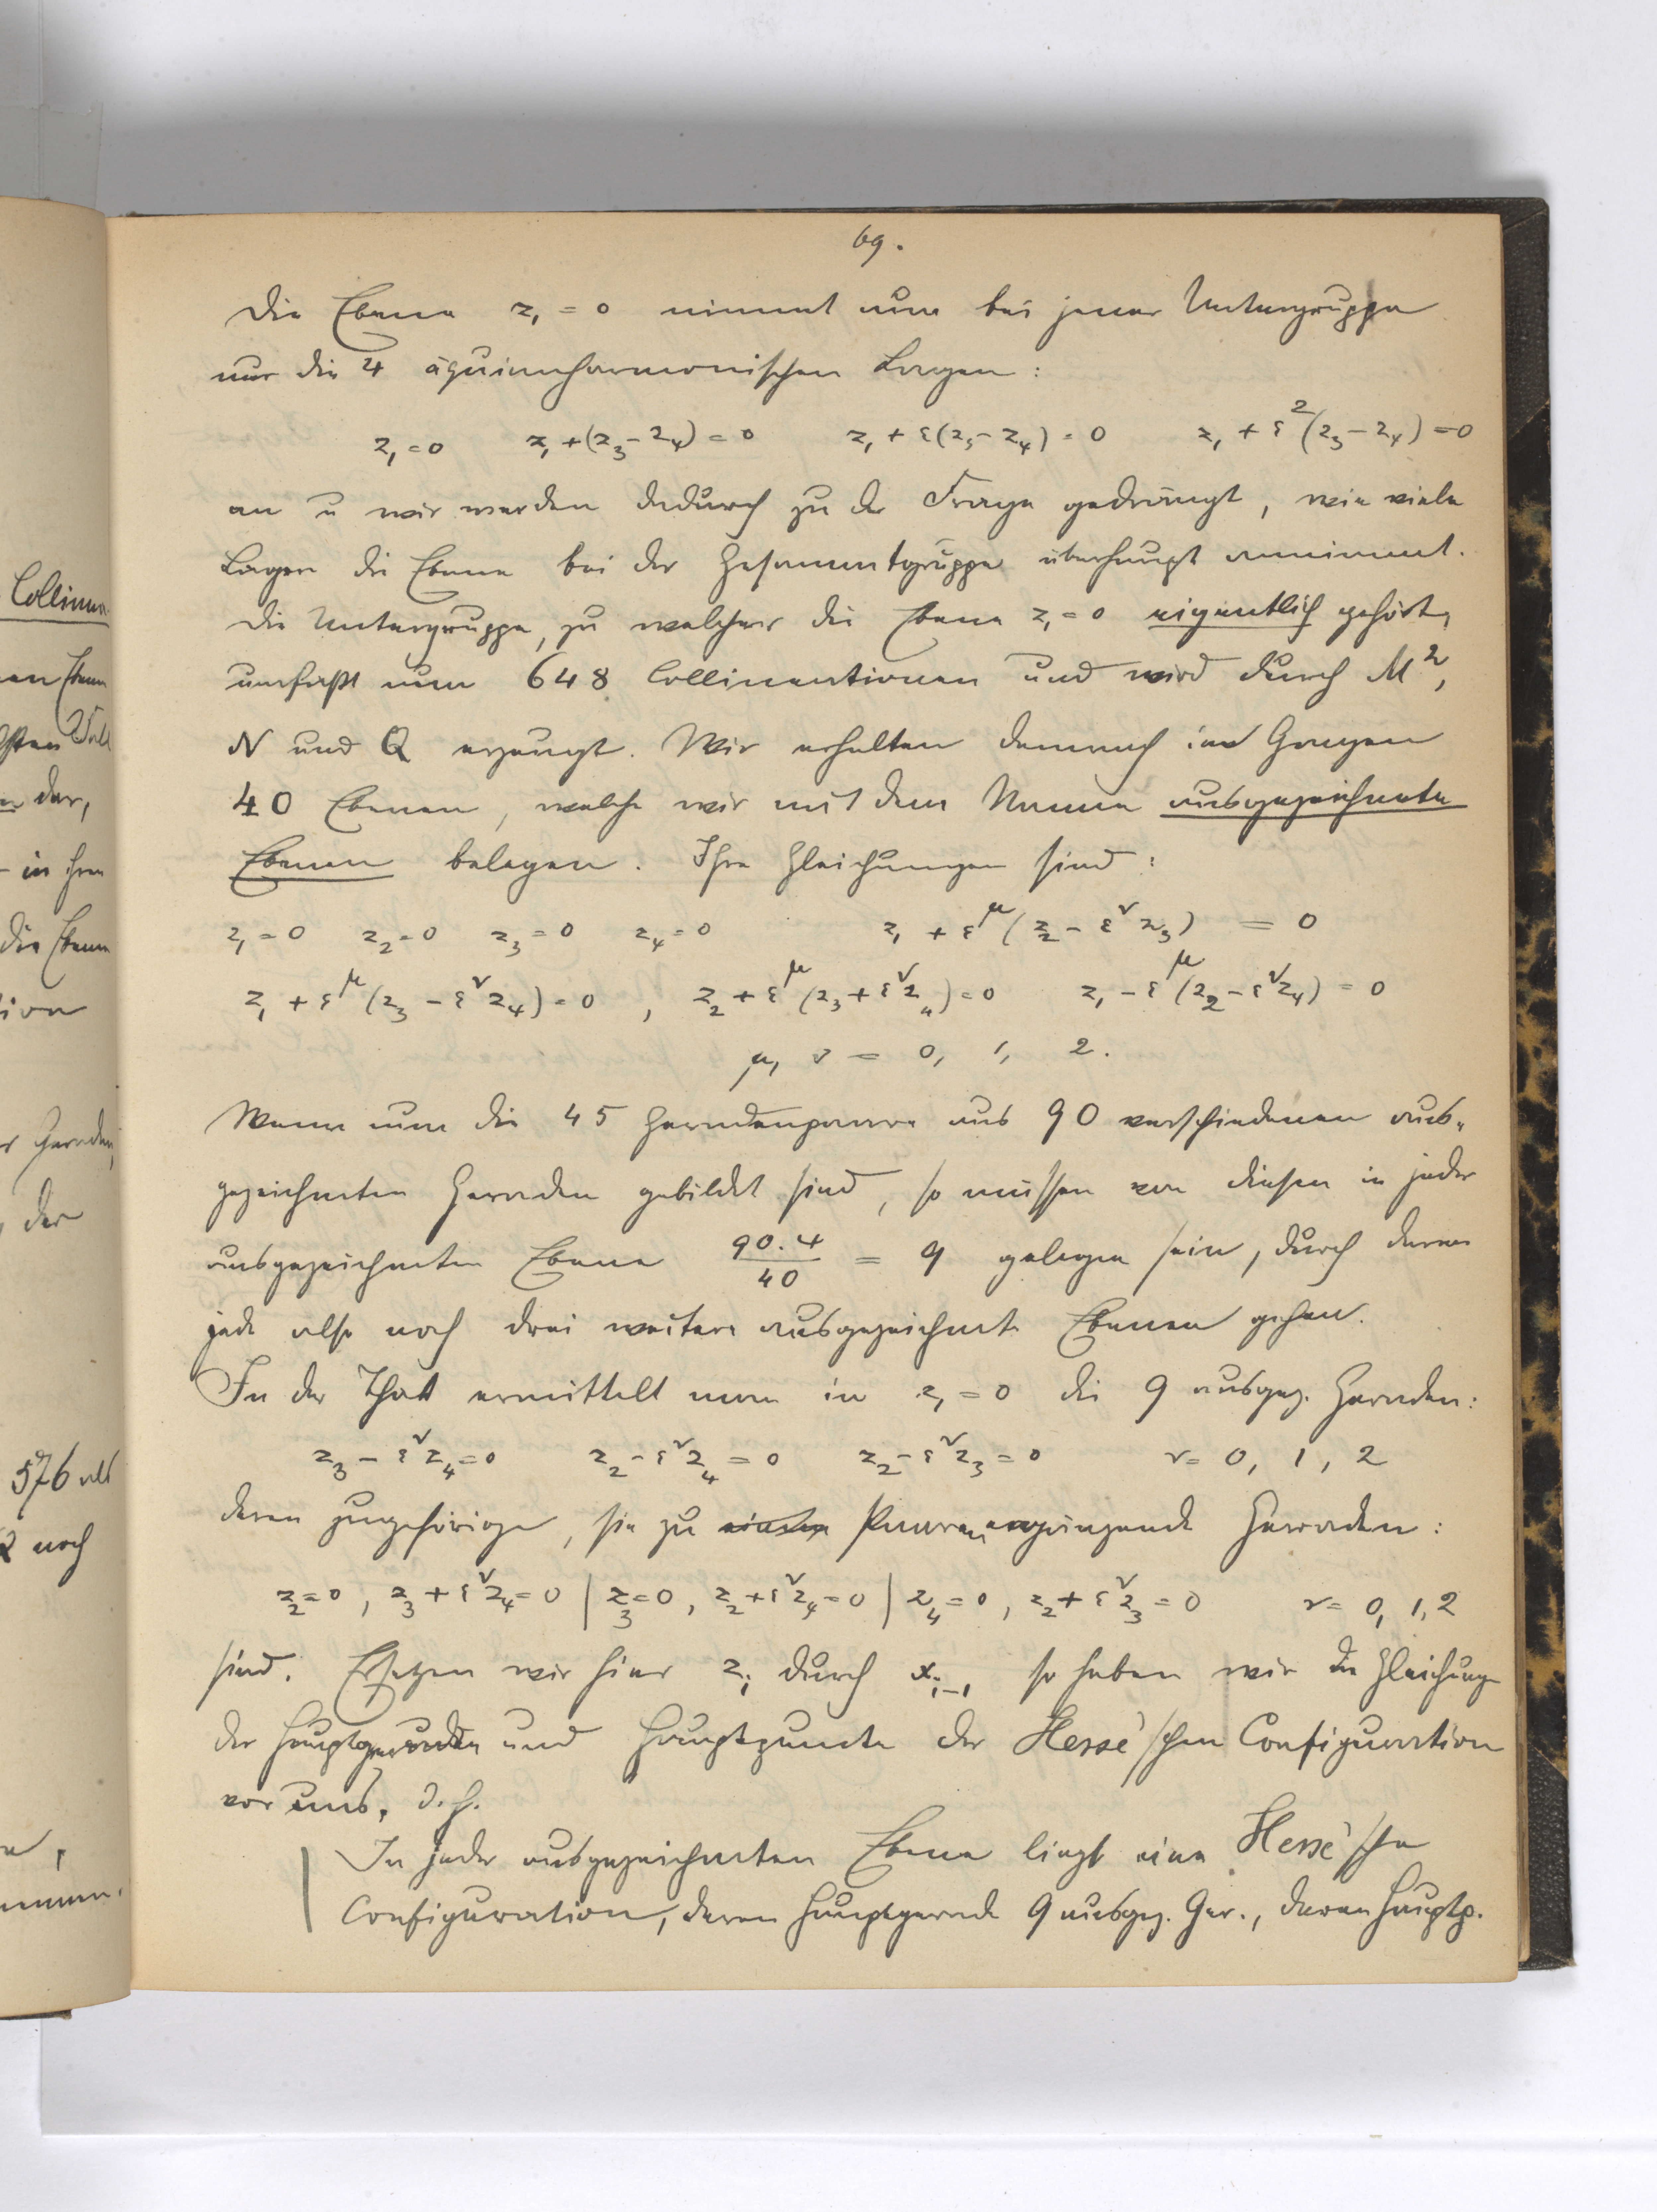 69.
Die Ebene z₁ = 0 nimmt nun bei jener Untergruppe
nur die 4 äquianharmonischen Lagen:
z₁ = 0 z₁ + (z₃ - z₄) = 0 z₁ + ε(z₃ - z₄) = 0 z₁ + ε²(z₃ - z₄) = 0
an u wir werden dadurch zu der Frage gedrängt, wie viele
Lagen die Ebene bei der Gesammtgruppe überhaupt annimmt.
Die Untergruppe, zu welcher die Ebene z₁ = 0 eigentlich gehört,
umfaßt nun 648 Collineationen und wird durch M²,
N und Q erzeugt. Wir erhalten demnach im Ganzen
40 Ebenen, welche wir mit dem Namen ausgezeichnete
Ebenen belegen. Ihre Gleichungen sind:
z₁ = 0 z₂ = 0 z₃ = 0 z₄ = 0 z₁ + ε^μ (z₂ - ε^ν z₃) = 0
z₁ + ε^μ (z₃ - ε^ν z₄) = 0, z₂ + ε^μ (z₃ + ε^ν z₄) = 0 z₁ - ε^μ (z₂ - ε^ν z₄) = 0
μ, ν = 0, 1, 2.
Wenn nun die 45 Geradenpaare aus 90 verschiedenen aus-
gezeichneten Geraden gebildet sind, so müssen von diesen in jeder
ausgezeichneten Ebene 90.4/40 = 9 gelegen sein, durch deren
jede also noch drei weitere ausgezeichnete Ebenen gehen.
In der That ermittelt man in z₁ = 0 die 9 ausgez. Geraden:
z₃ - ε^ν z₄ = 0 z₂ - ε^ν z₄ = 0 z₂ - ε^ν z₃ = 0 ν = 0, 1, 2
deren zugehörige, sie zu Paaren ergänzende Geraden:
z₂ = 0, z₃ + ε^ν z₄ = 0 | z₃ = 0, z₂ + ε^ν z₄ = 0 | z₄ = 0, z₂ + ε^ν z₃ = 0 ν = 0, 1, 2
sind. Ersetzen wir hier zᵢ durch xᵢ₋₁ so haben wir die Gleichung
der Hauptgeraden und Hauptpuncte der Hesse'schen Configuration
vor uns, d.h.
In jeder ausgezeichneten Ebene liegt eine Hesse'sche
Configuration, deren Hauptgerade 9 ausgez. Ger., deren Hauptp.
Collinea-
en Ebene
dar,
- in ihrer
die Ebene
tion
r Geraden,
, der
576 als
Q noch